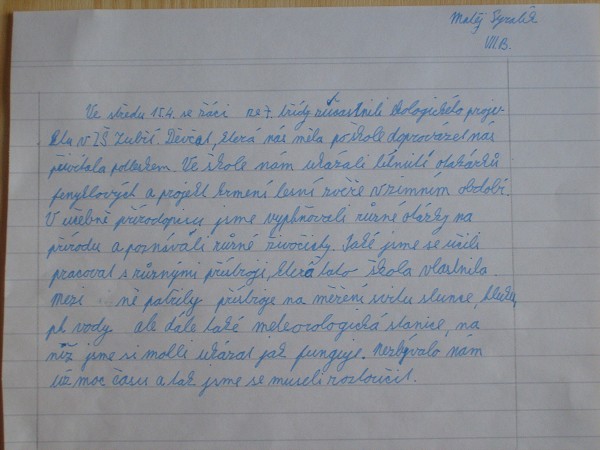 Matěj
VII.B.
Ve středu 15.4. se žáci ze 7. třídy zúčastnili ekologického proje-
ktu v ZŠ Zubří. Děvčat, která nás měla po škole doprovázet nás
přivítala potleskem. Ve škole nám ukázali
a projekt krmení lesní zvěře v zimním období.
V učebně přírodopisu jsme vyplňovali různé otázky na
přírodu a poznávali různé živočichy. Také jsme se učili
pracovat s různými přístroji, která tato škola vlastnila.
Mezi ně patřily přístroje na měření svitu slunce, hluku,
ph vody ale dále také meteorologická stanice, na
níž jsme si mohli ukázat jak funguje. Nezbývalo nám
už moc času a tak jsme se museli rozloučit.